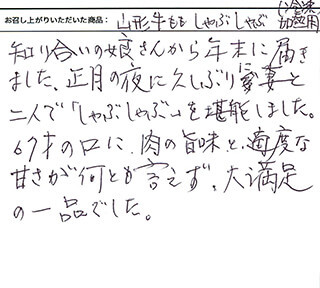 お召し上がりいただいた商品： 山形牛もも しゃぶしゃぶ
知り合いの娘さんから年末に届き
ました、正月の夜に久しぶりに愛妻と
二人で「しゃぶしゃぶ」を堪能しました。
67才の口に、肉の旨味と、適度な
甘さが何とも言えず、大満足
の一品でした。